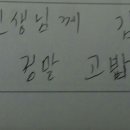 선생님께
정말 고맙